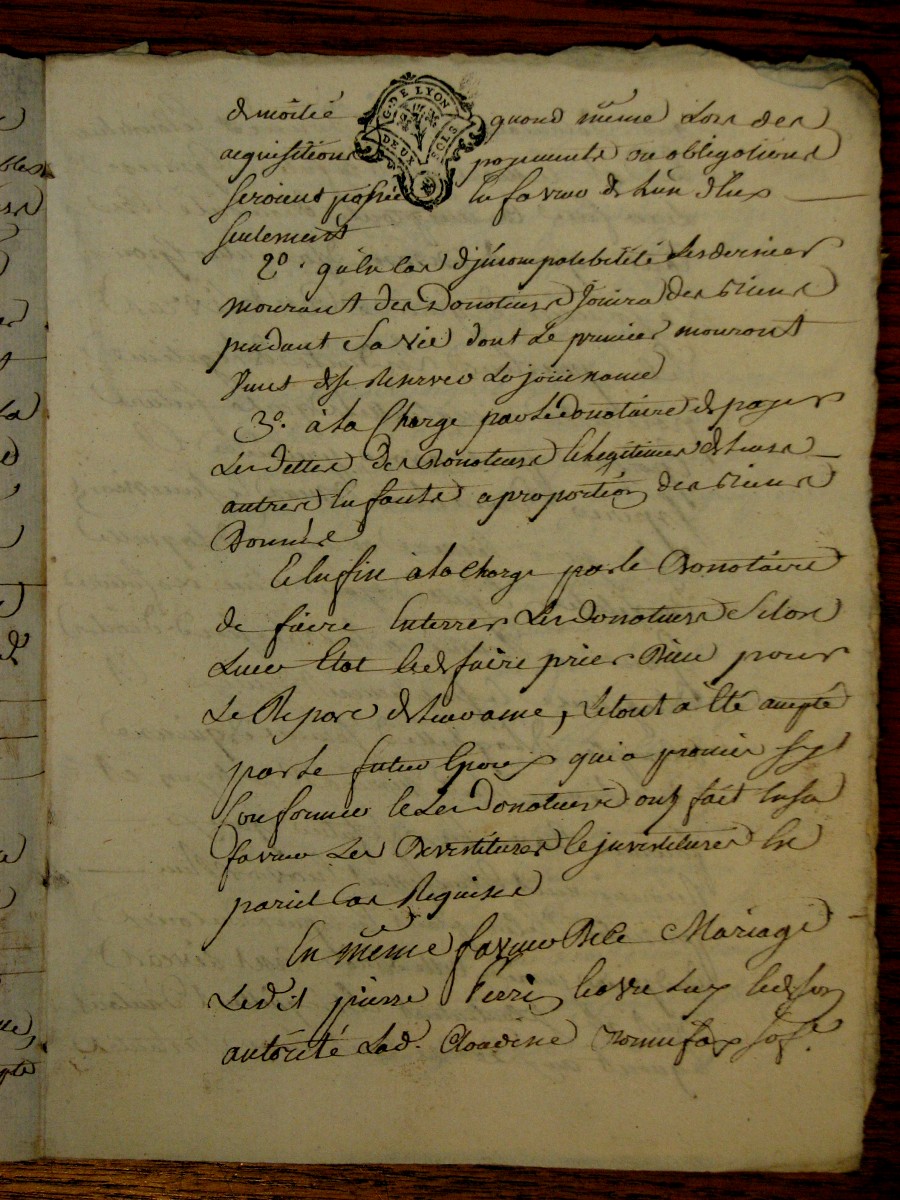 G. DE LYON
DEUX SOLS
de moitié quand même Lors des
acquisitions payements ou obligations
seroient passés En faveur de L'un d'Eux
seulement
2º. qu'En Cas d'jncompatibilité Les dernier
mourant des Donateurs Jouira des Biens
pendant Sa vie dont Le premier mourant
vient de se Reserver La jouissance
3º. à la Charge par Le donataire de payer
Les dettes des Donateurs Et Legitimes de Leurs
autres Enfants a proportion des Biens
Donnés
Et Enfin à la charge par le Donataire
de faire Enterrer Les donateurs Selon
Leur Etat Et de faire prier Dieu pour
Le Repos de Leur ame, Le tout à Eté accepté
par Le futur Epoux qui a promis s'y
Conformer Et Les Donateurs ont fait En sa
faveur Les Devestitures Et jnvestitures En
pareil Cas Requises
En même faveur De Ce Mariage
Ledit pierre Et de son
autorité Lad. Claudine Bonnefax sa fe.